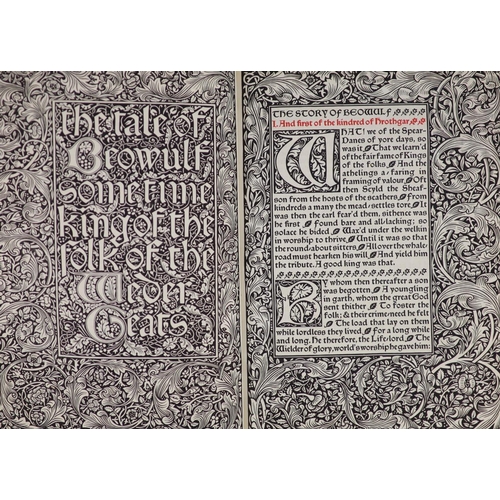 the tale of
Beowulf
sometime
king of the
folk of the
Weder
Geats
THE STORY OF BEOWULF
I. And first of the kindred of Hrothgar.
WHAT! we of the Spear-
Danes of yore days, so
was it That we learn'd
of the fair fame of kings
of the folks And the
athelings a-faring in
framing of valour. Oft
then Scyld the Sheaf-
son from the hosts of the scathers, From
kindreds a many the mead-settles tore; It
was then the earl fear'd them, sithence was
he first Found bare and all-lacking; so
solace he bided, Wax'd under the welkin
in worship to thrive, Until it was so that
the round-about sitters All over the whale-
road must hearken his will And yield him
the tribute. A good king was that.
By whom then thereafter a son
was begotten, A youngling
in garth, whom the great God
sent thither To foster the
folk; & their crime-need he felt
The load that lay on them
while lordless they lived For a long while
and long. He therefore, the Life-lord, The
Wielder of glory, world's worship he gave him: